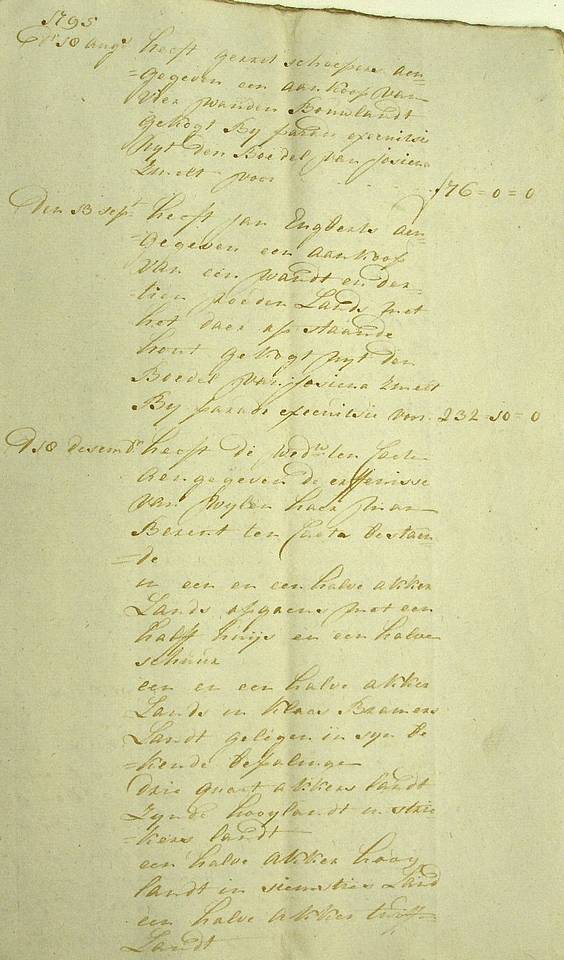 1795
Den 10 augs heeft gerret schoepers aen
=gegeven een aankoop van
vier wanden Bouwlandt
gekogt By parate executsie
uyt den Boedel van Josiena
Smelt voor 176=0=0
Den 13 sept heeft jan Engberts aen
=gegeven een aankoop
van een wandt en der=
tien roeden Lands met
het daer op staande
hout gekogt uyt den
Boedel van Josiena Smelt
By parate executsie voor 232=10=0
D 10 desembr heeft de wedw ten
aengegeven de erffenisse
van wylen haer man
Berent ten bestaen
=de
in een en een halve akker
Lands met een
half huijs en een halve
schuur
een en een halve akker
Lands in Klaas Bramers
Landt gelegen in syn be
=kende bepalinge
drie quart akkers landt
Zynde hooylandt in stri
=kers landt
een halve akker hooy
landt in Land
een halve akker
Landt